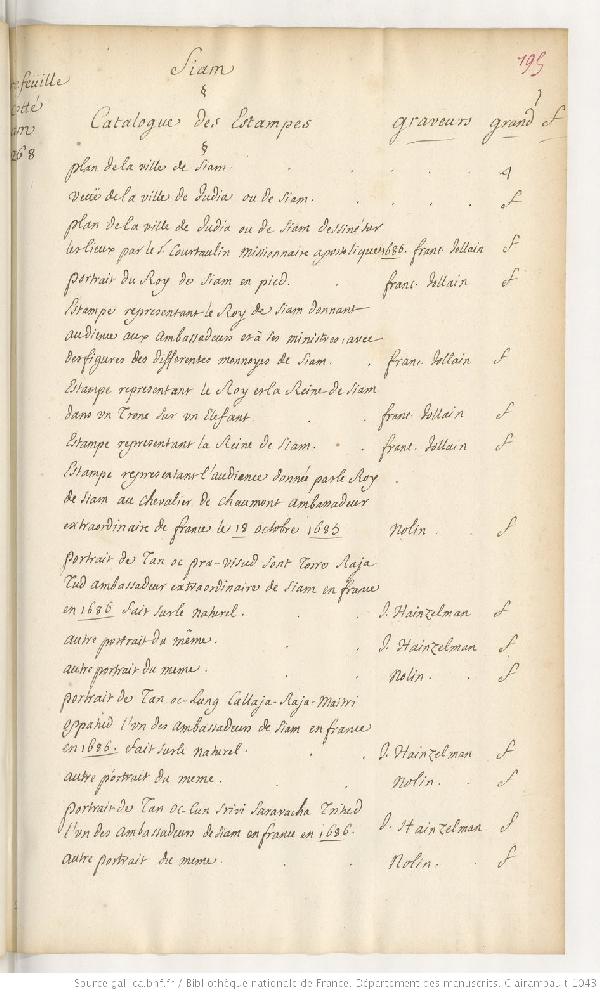 Siam
195
Catalogue des Estampes graveurs grand f
plan de la ville de Siam. 4
veüe de la ville de Judia ou de Siam. f
plan de la ville de Judia ou de Siam dessiné sur
les lieux par le S. Courtaulin missionnaire apostolique 1686. franc. Jollain f
portrait du Roy de Siam en pied. franc. Jollain f
Estampe representant le Roy de Siam donnant
audience aux ambassadeurs et à ses ministres, avec
des figures des differentes monnoyes de Siam. franc. Jollain f
Estampe representant le Roy et la Reine de Siam
dans un Trone sur un Elefant franc. Jollain f
Estampe representant la Reine de Siam. franc. Jollain f
Estampe representant l'audience donnée par le Roy
de Siam au chevalier de Chaumont ambassadeur
extraordinaire de france le 18 octobre 1685 Nolin. f
portrait de Tan oc pra-visud Sont Torro Raja
Tud ambassadeur extraordinaire de Siam en france
en 1686 fait sur le naturel. J. Hainzelman f
autre portrait du même. J. Hainzelman f
autre portrait du meme. Nolin. f
portrait de Tan oc-Lung Callaja-Raja-Maitri
oppahud l'un des ambassadeurs de Siam en france
en 1686. fait sur le naturel. J. Hainzelman f
autre portrait du meme. Nolin. f
portrait de Tan oc-Cun Srivi Saravacha Trihud
l'un des ambassadeurs de Siam en france en 1686. J. Hainzelman f
autre portrait du meme. Nolin. f
Source gallica.bnf.fr / Bibliothèque nationale de France. Département des manuscrits. Clairambault 1043